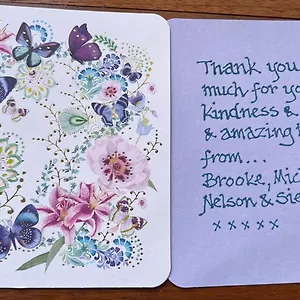 Thank you
much for
kindness &
& amazing
from...
Brooke,
Nelson &
x x x x x